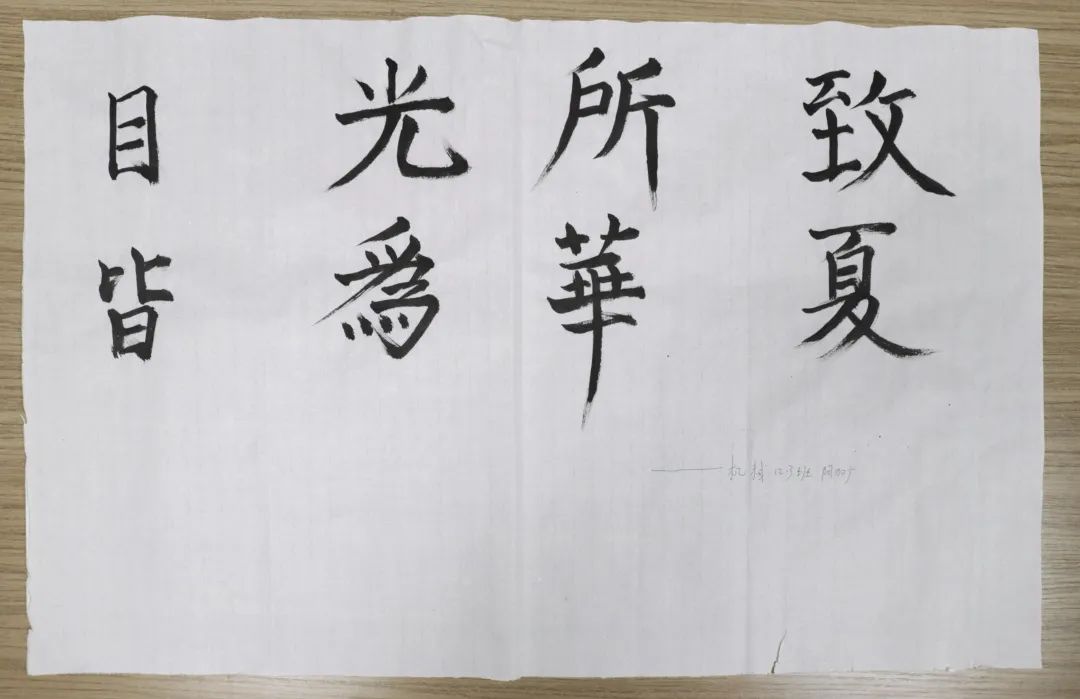 目光所致
皆爲華夏
——机械 班